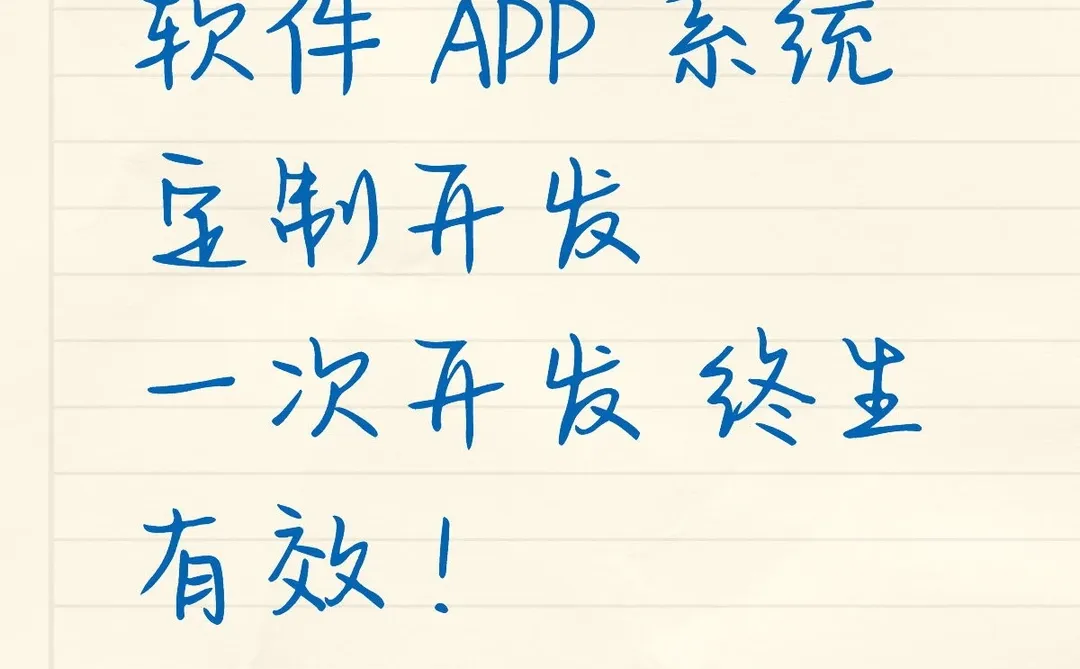 软件 APP 系统
定制开发
一次开发 终生
有效！